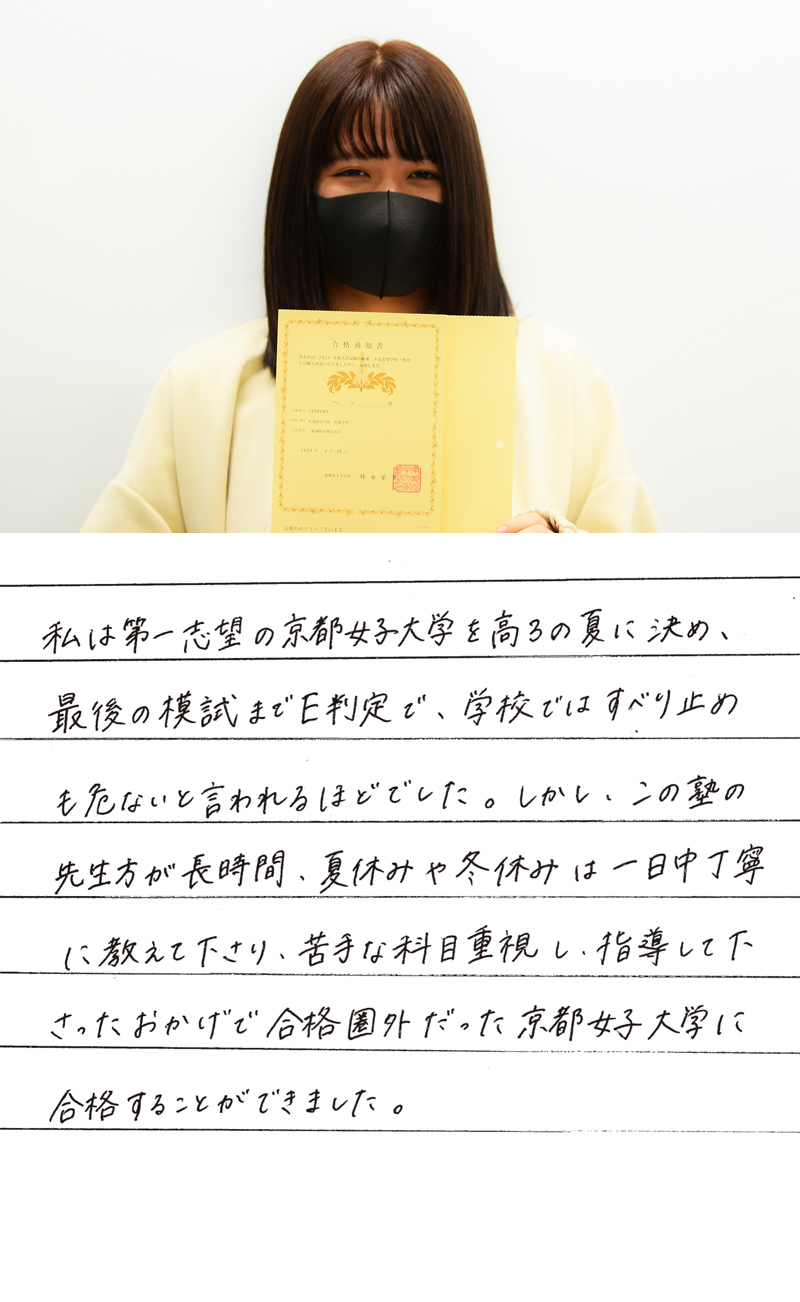 合格通知書
私は第一志望の京都女子大学を高3の夏に決め、
最後の模試までE判定で、学校ではすべり止め
も危ないと言われるほどでした。しかし、この塾の
先生方が長時間、夏休みや冬休みは一日中丁寧
に教えて下さり、苦手な科目重視し、指導して下
さったおかげで合格圏外だった京都女子大学に
合格することができました。